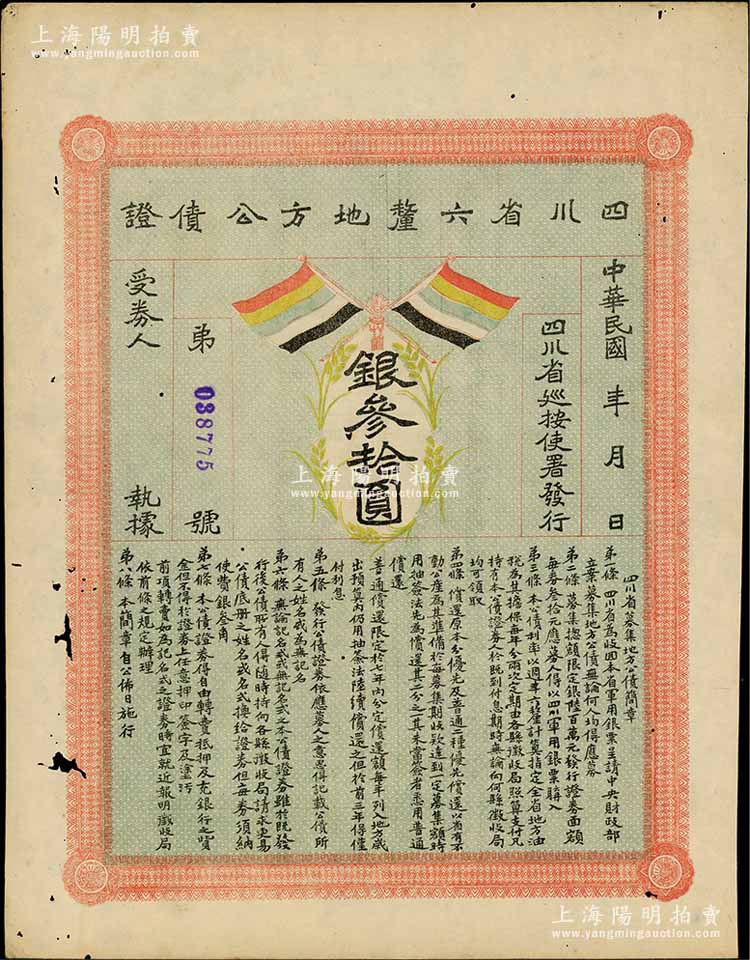 上海陽明拍賣
www.yangmingauction.com
上海陽明拍賣
www.yangmingauction.com
四川省六釐地方公債證
中華民國 年 月 日
四川省巡按使署發行
銀參拾圓
弟 038775 號
受券人 執據
上海陽明拍賣
www.yangmingauction.com
四川省募集地方公債簡章
第一條 四川省為收回本省軍用銀票呈請中央財政部
立案募集地方公債無論何人均得應募
第二條 募集總額限定銀陸百萬元發行證券面額
每券叁拾元應募人得以四川軍用銀票購入
第三條 本公債利率以週年六釐計算指定全省地方油
稅為其擔保每年分兩次定期由各縣徵收局照算支付凡
持有本公債證券人於既到付息期時無論向何縣徵收局
均可領取
第四條 償還原本分優先及普通二種優先償還以省有不
動公產為其準備於每募集期收欵達到一定募集額時
用抽簽法先為償還其二分之其未當簽者悉用普通
償還
普通償還限定於七年內分定償還額每年列入地方歲
出預算內仍用抽簽法陸續償還之但於前三年得僅
付利息
第五條 發行公債證券依應募人之意思得記載公債所
有人之姓名或為無記名
第六條 無論記名式或無記名式之本公債證券雖於既發
行後公債所有人得隨時持向各縣徵收局請求更易
公債底冊之姓名或名式換給證券但每券須納
使費銀叁角
第七條 本公債證券得自由轉賣抵押及充銀行之資
金但不得於證券上任意押印簽字及塗污
前項轉賣如為記名式之證券時宜就近報明徵收局
依前條之規定辦理
第八條 本簡章自公佈日施行
上海陽明拍賣
www.yangmingauction.com